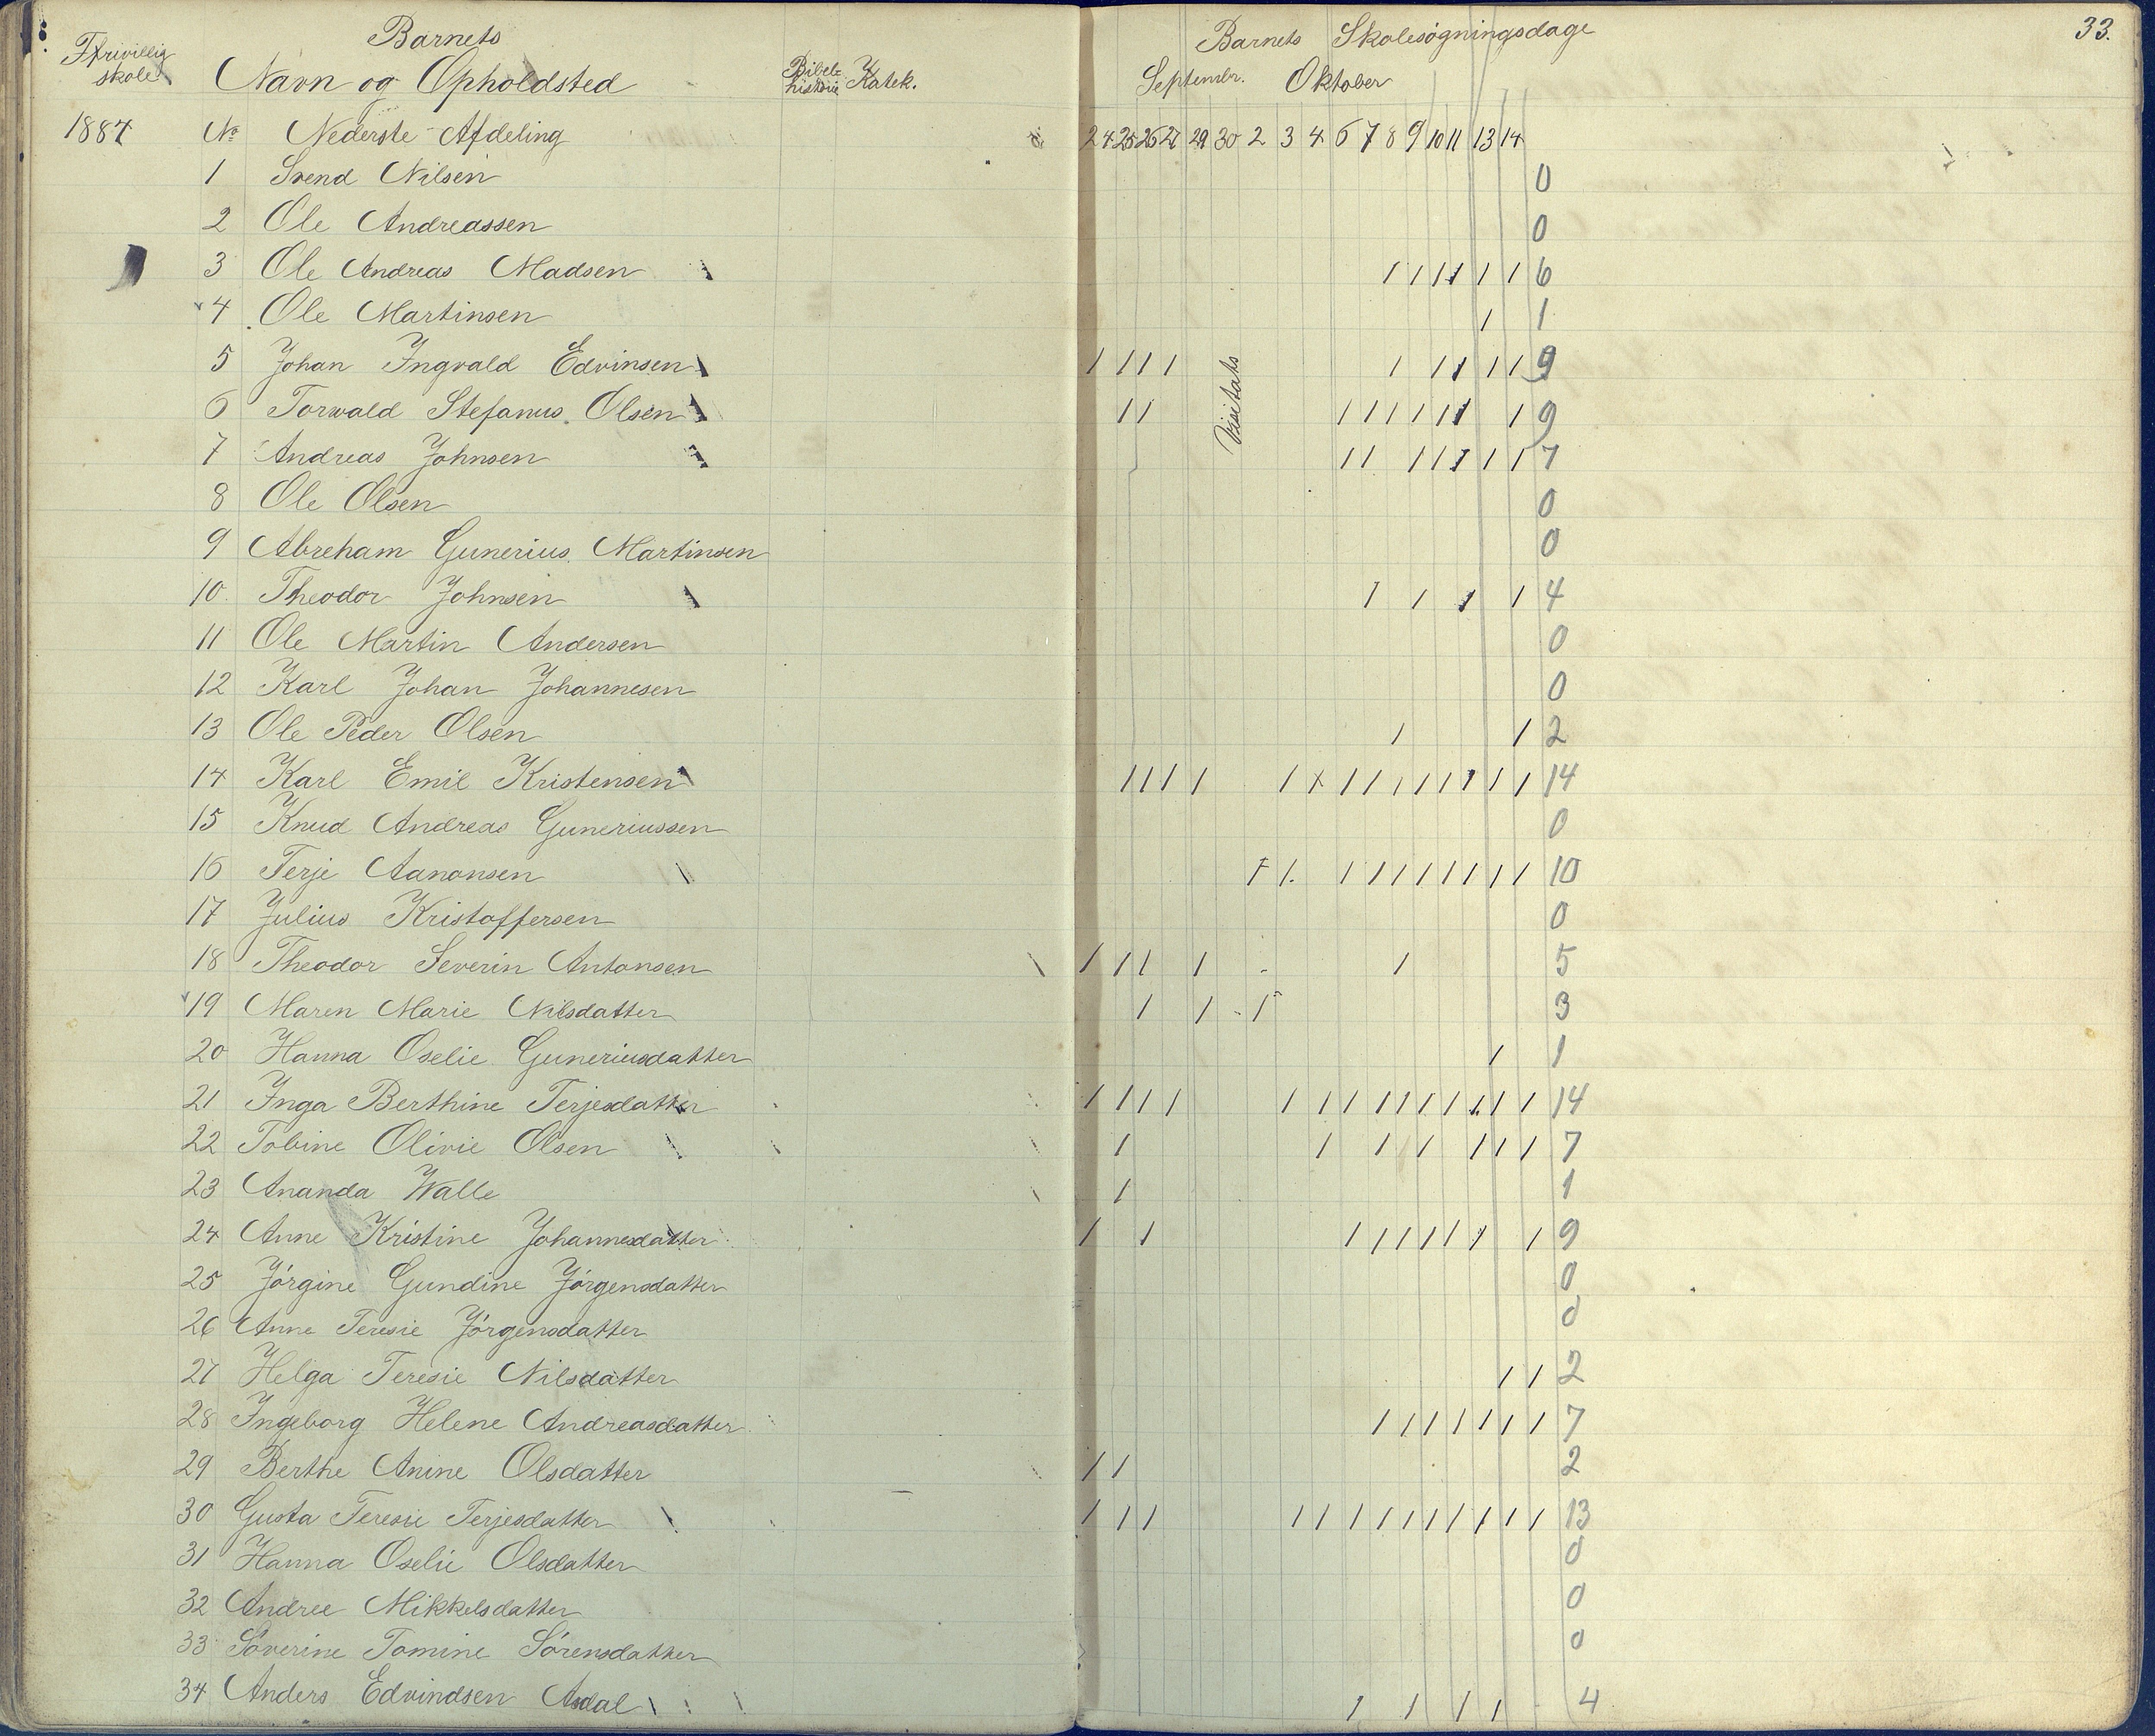 Barnets
Frivillig skole
Navn og Opholdsted
Bibelhistorie Katek.
Barnets Skolesøgningsdage
33.
Septembr. Oktober
1884 No Nederste Afdeling 24 25 26 27 29 30 2 3 4 6 7 8 9 10 11 13 14
1 Svend Nilsen 0
2 Ole Andreassen 0
3 Ole Andreas Madsen 1 1 1 1 1 1 6
4 Ole Martinsen 1 1
5 Johan Ingvald Edvinsen 1 1 1 1 1 1 1 1 1 9
Visitats
6 Torvald Stefanus Olsen 1 1 1 1 1 1 1 1 1 9
7 Andreas Johnsen 1 1 1 1 1 1 1 7
8 Ole Olsen 0
9 Abreham Gunerius Martinsen 0
10 Theodor Johnsen 1 1 1 1 4
11 Ole Martin Andersen 0
12 Karl Johan Johannesen 0
13 Ole Peder Olsen 1 1 2
14 Karl Emil Kristensen 1 1 1 1 1 1 1 1 1 1 1 1 1 1 14
15 Knud Andreas Guneriussen 0
16 Terje Aanonsen 1 1 1 1 1 1 1 1 1 1 10
17 Julius Kristoffersen 0
18 Theodor Severin Antonsen 1 1 1 1 1 5
19 Maren Marie Nilsdatter 1 1 1 3
20 Hanna Oselie Guneriusdatter 1 1
21 Inga Berthine Terjesdatter 1 1 1 1 1 1 1 1 1 1 1 1 1 1 14
22 Tobine Olivie Olsen 1 1 1 1 1 1 1 7
23 Ananda Walle 1 1
24 Anne Kristine Johannesdatter 1 1 1 1 1 1 1 1 1 9
25 Jörgine Gundine Jörgensdatter 0
26 Anne Teresie Jörgensdatter 0
27 Helga Teresie Nilsdatter 1 1 2
28 Ingeborg Helene Andreasdatter 1 1 1 1 1 1 1 7
29 Berthe Anine Olsdatter 1 1 2
30 Gusta Teresie Terjesdatter 1 1 1 1 1 1 1 1 1 1 1 1 1 13
31 Hanna Oselie Olsdatter 0
32 Andree Mikkelsdatter 0
33 Söverine Tomine Sörensdatter 0
34 Anders Edvindsen Asdal 1 1 1 1 4